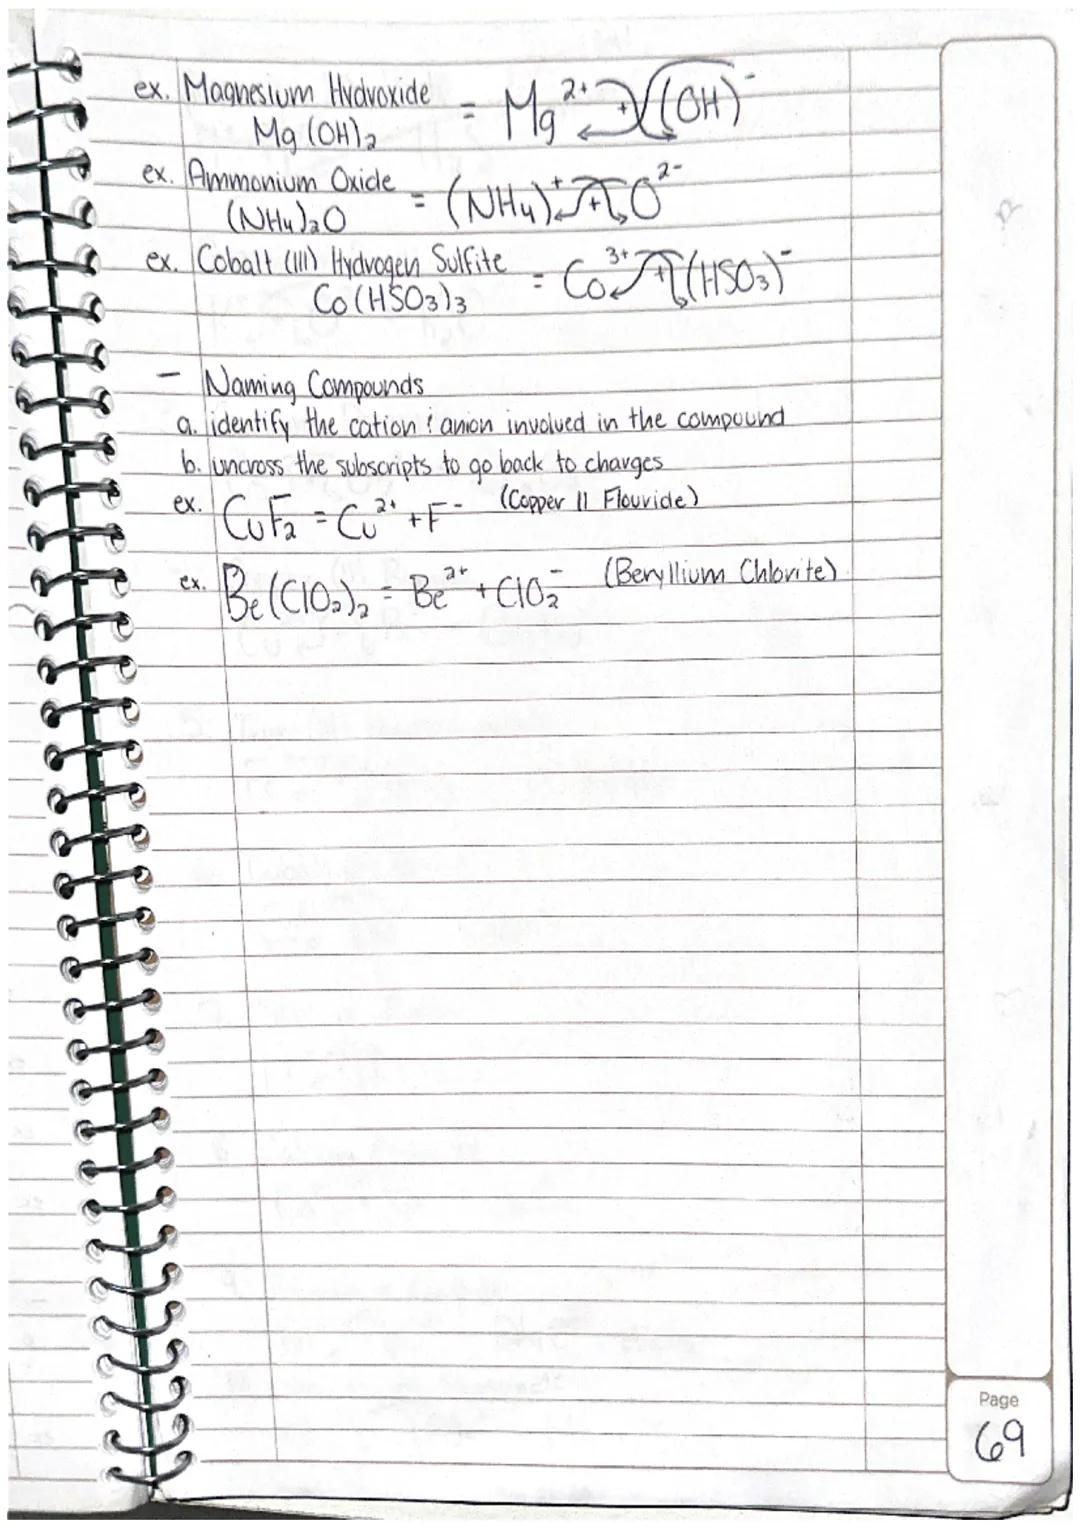 ex. Magnesium Hydroxide = Mg²⁺ + (OH)⁻
Mg(OH)₂
ex. Ammonium Oxide = (NH₄)⁺ + O²⁻
(NH₄)₂O
ex. Cobalt (III) Hydrogen Sulfite = Co³⁺ + (HSO₃)⁻
Co(HSO₃)₃
- Naming Compounds
a. identify the cation & anion involved in the compound
b. uncross the subscripts to go back to charges
ex. CuF₂ = Cu²⁺ + F⁻ (Copper II Flouride)
ex. Be(ClO₂)₂ = Be²⁺ + ClO₂⁻ (Beryllium Chlorite)
Page
69